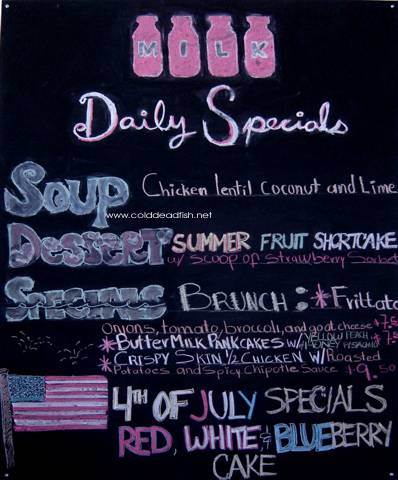 MILK
Daily Specials
Soup Chicken lentil Coconut and Lime
www.colddeadfish.net
Dessert SUMMER FRUIT SHORTCAKE
w/ scoop of Strawberry Sorbet
Specials BRUNCH: *Frittata
Onions, tomato, broccoli, and goat cheese $7.5
*ButterMILK PANKCAKES w/ YELLOW PEACH
HONEY PISTACHIO $7.5
*CRISPY SKIN 1/2 CHICKEN W/ Roasted
Potatoes and Spicy Chipotle Sauce $9.50
4TH OF JULY SPECIALS
RED, WHITE & BLUEBERRY
CAKE